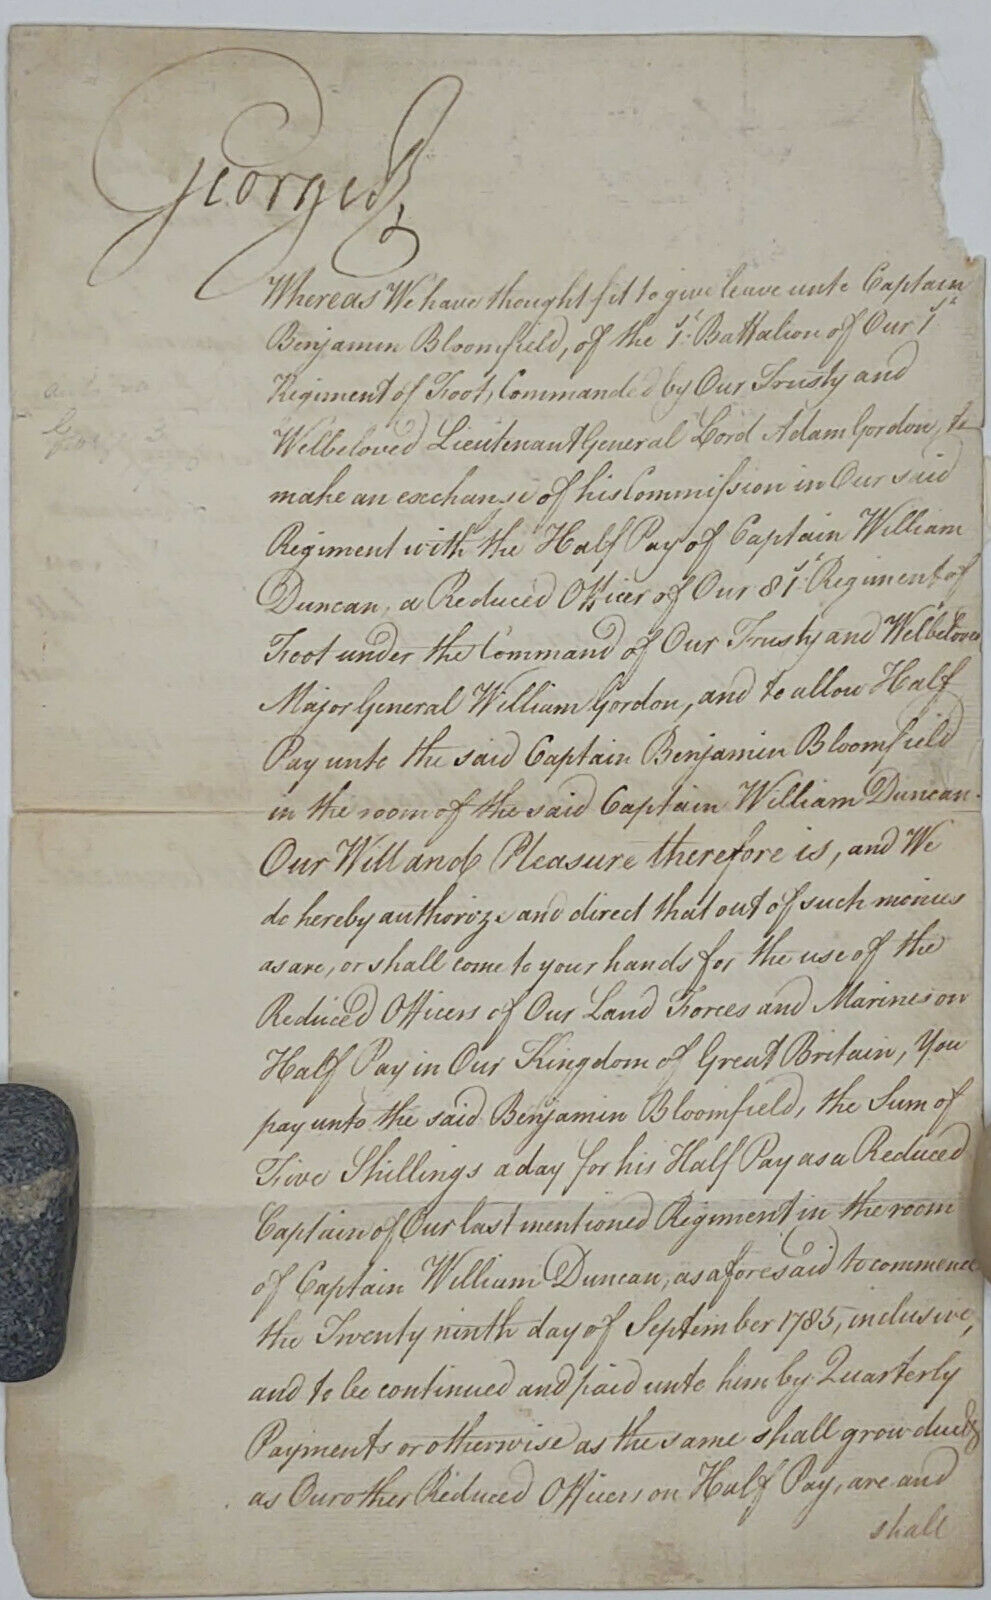 George R
Whereas We have thought fit to give leave unto Captain
Benjamin Bloomfield, of the 1st. Battalion of Our 1st
Regiment of Foot, Commanded by Our Trusty and
Welbeloved Lieutenant General Lord Adam Gordon, to
make an exchange of his Commission in Our said
Regiment with the Half Pay of Captain William
Duncan, a Reduced Officer of Our 81st. Regiment of
Foot under the Command of Our Trusty and Welbeloved
Major General William Gordon, and to allow Half
Pay unto the said Captain Benjamin Bloomfield
in the room of the said Captain William Duncan.
Our Will and Pleasure therefore is, and We
do hereby authorize and direct that out of such monies
as are, or shall come to your hands for the use of the
Reduced Officers of Our Land Forces and Marines on
Half Pay in Our Kingdom of Great Britain, You
pay unto the said Benjamin Bloomfield, the Sum of
Five Shillings a day for his Half Pay as a Reduced
Captain of Our last mentioned Regiment in the room
of Captain William Duncan, as aforesaid to commence
the Twenty ninth day of September 1785, inclusive,
and to be continued and paid unto him by Quarterly
Payments or otherwise as the same shall grow due &
as Our other Reduced Officers on Half Pay, are and
shall